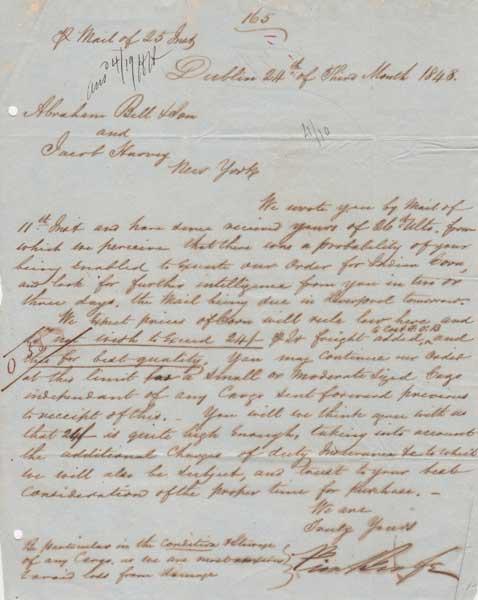 165
P Mail of 25 Inst
ansd 4/19/48
Dublin 24th of Third Month 1848.
Abraham Bell & Son
and
Jacob Harvey
4/10
New York
We wrote you by Mail of
11th Inst and have since received yours of 26th Ulto. from
which we perceive that there was a probability of your
being enabled to Execute our Order for Indian Corn,
and look for further intelligence from you in two or
three days, the Mail being due in Liverpool tomorrow.
We Expect prices of Corn will rule low here and
not wish to Exceed 24/ P Qr freight added, to Cost F.O.B and
this for best quality. You may Continue our Order
at this limit for a Small or Moderate Sized Cargo
independant of any Cargo Sent forward previous
to receipt of this. - You will we think agree with us
that 24/ is quite high Enough, taking into account
the additional Charges of duty Insurance &c to which
we will also be Subject, and trust to your best
Consideration of the proper time for purchase. -
We are
Truly Yours
Be particular in the Condition & Storage
of any Cargo, as we are most anxious
to avoid loss from damage